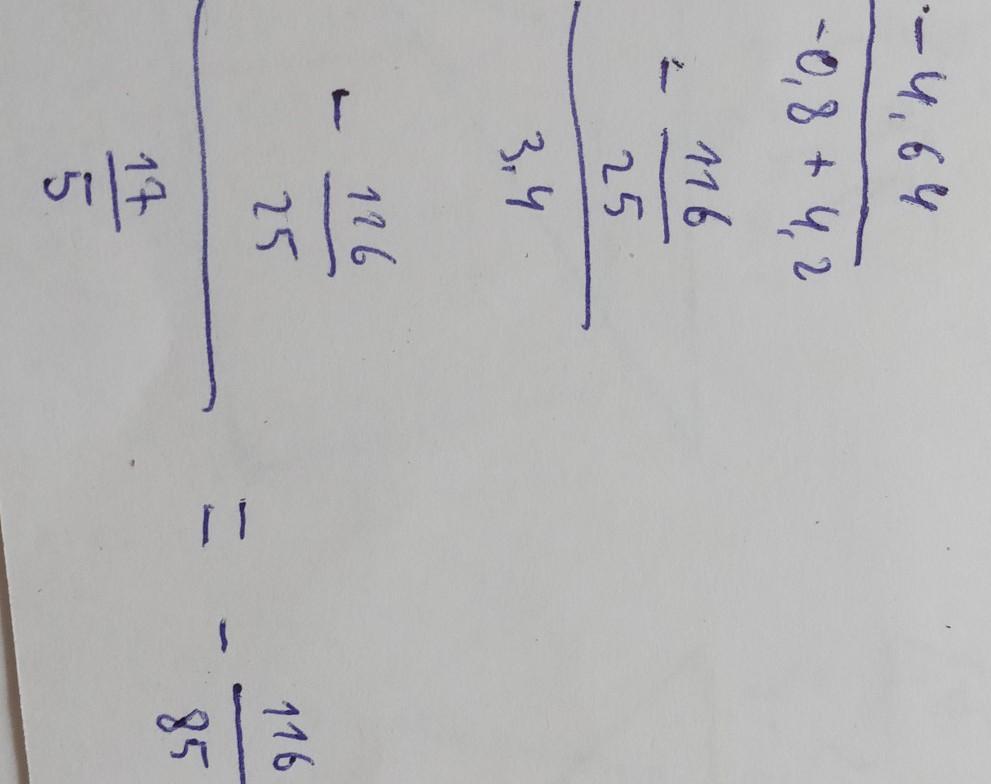 -4,64
-0,8+4,2
- 116
25
3,4
- 116
25
17
5
= - 116
85